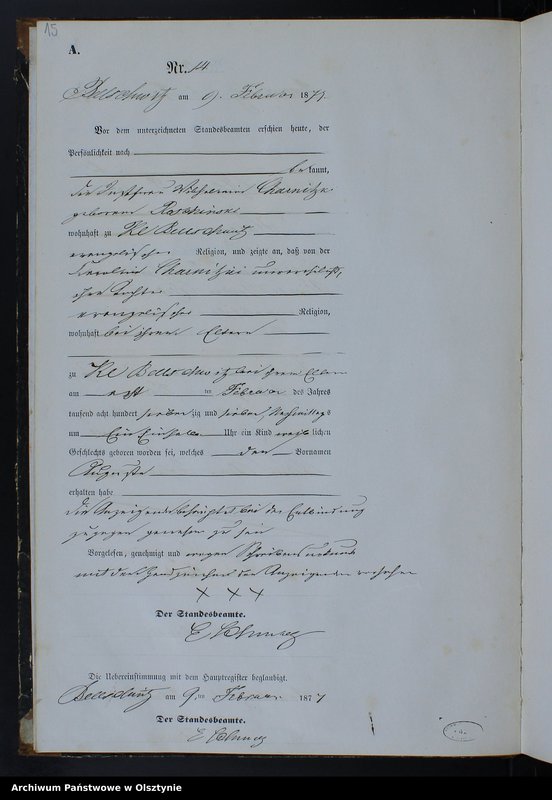 15
A.
Nr. 14
Bellschwitz am 9. Februar 1877
Vor dem unterzeichneten Standesbeamten erschien heute, der
Persönlichkeit nach
bekannt,
die Wilhelmine Charnitzki
geborene
wohnhaft zu Kl Bellschwitz
evangelischer Religion, und zeigte an, daß von der
Caroline Charnitzki unverehelicht,
ihre Tochter
evangelischer Religion,
wohnhaft bei ihren Eltern
zu Kl Bellschwitz bei ihren Eltern
am ten Februar des Jahres
tausend acht hundert siebenzig und sieben, Nachmittags
um Ein Uhr ein Kind weiblichen
Geschlechts geboren worden sei, welches den Vornamen
Auguste
erhalten habe
die Anzeigende behauptet bei der Entbindung
zugegen gewesen zu sein
Vorgelesen, genehmigt und wegen Schreibensunkunde
mit der Anzeigenden versehen
X X X
Der Standesbeamte.
Die Uebereinstimmung mit dem Hauptregister beglaubigt.
Bellschwitz am 9.ten Februar 1877
Der Standesbeamte.
Archiwum Państwowe w Olsztynie